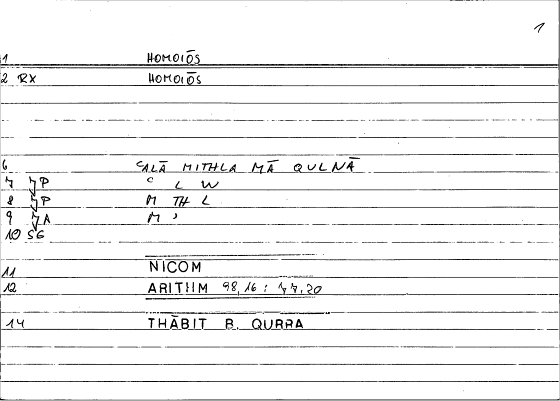 1
1 HOMOIŌS
2 RX HOMOIŌS
6 ʿALĀ MITHLA MĀ QULNĀ
7 P ʿ L W
8 P M TH L
9 A M ʾ
10 SG
11 NICOM
12 ARITHM 98,16 : 77,20
14 THĀBIT B. QURRA